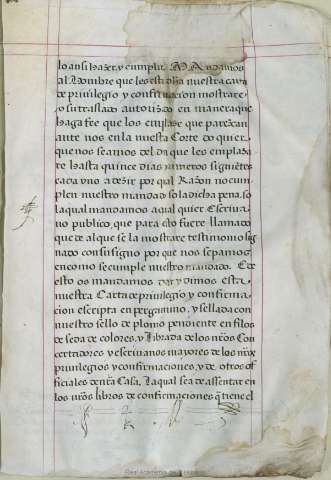 lo ansi hazer, y cumplir. Mandamos
al Hombre que les esta dha nuestra carta
de privilegio y confirmacion mostrare
o su traslado autorizado en manera que
haga fee que los emplase que parezcan
ante nos en la nuestra Corte do quier
que nos seamos del dia que les emplaza
re hasta quince dias primeros siguientes
cada uno a desir por qual Razon no cum
plen nuestro mandado so la dicha pena, so
la qual mandamos a qual quier Escriva
no publico, que para esto fuere llamado
que de al que se la mostrare testimonio sig
nado con su signo por que nos sepamos
en como se cumple nuestro mandado. E de
esto os mandamos dar y dimos esta
nuestra Carta de privilegio y confirma
cion escripta en pergamino, y sellada con
nuestro sello de plomo pendiente en filos
de seda de colores, y librada de los nros Con
certadores y escrivanos mayores de los nros
privilegios y confirmaciones, y de otros of
ficiales de nra Casa. La qual sea de assentar en
los nros libros de confirmaciones q tiene el
Real Academia de la Historia